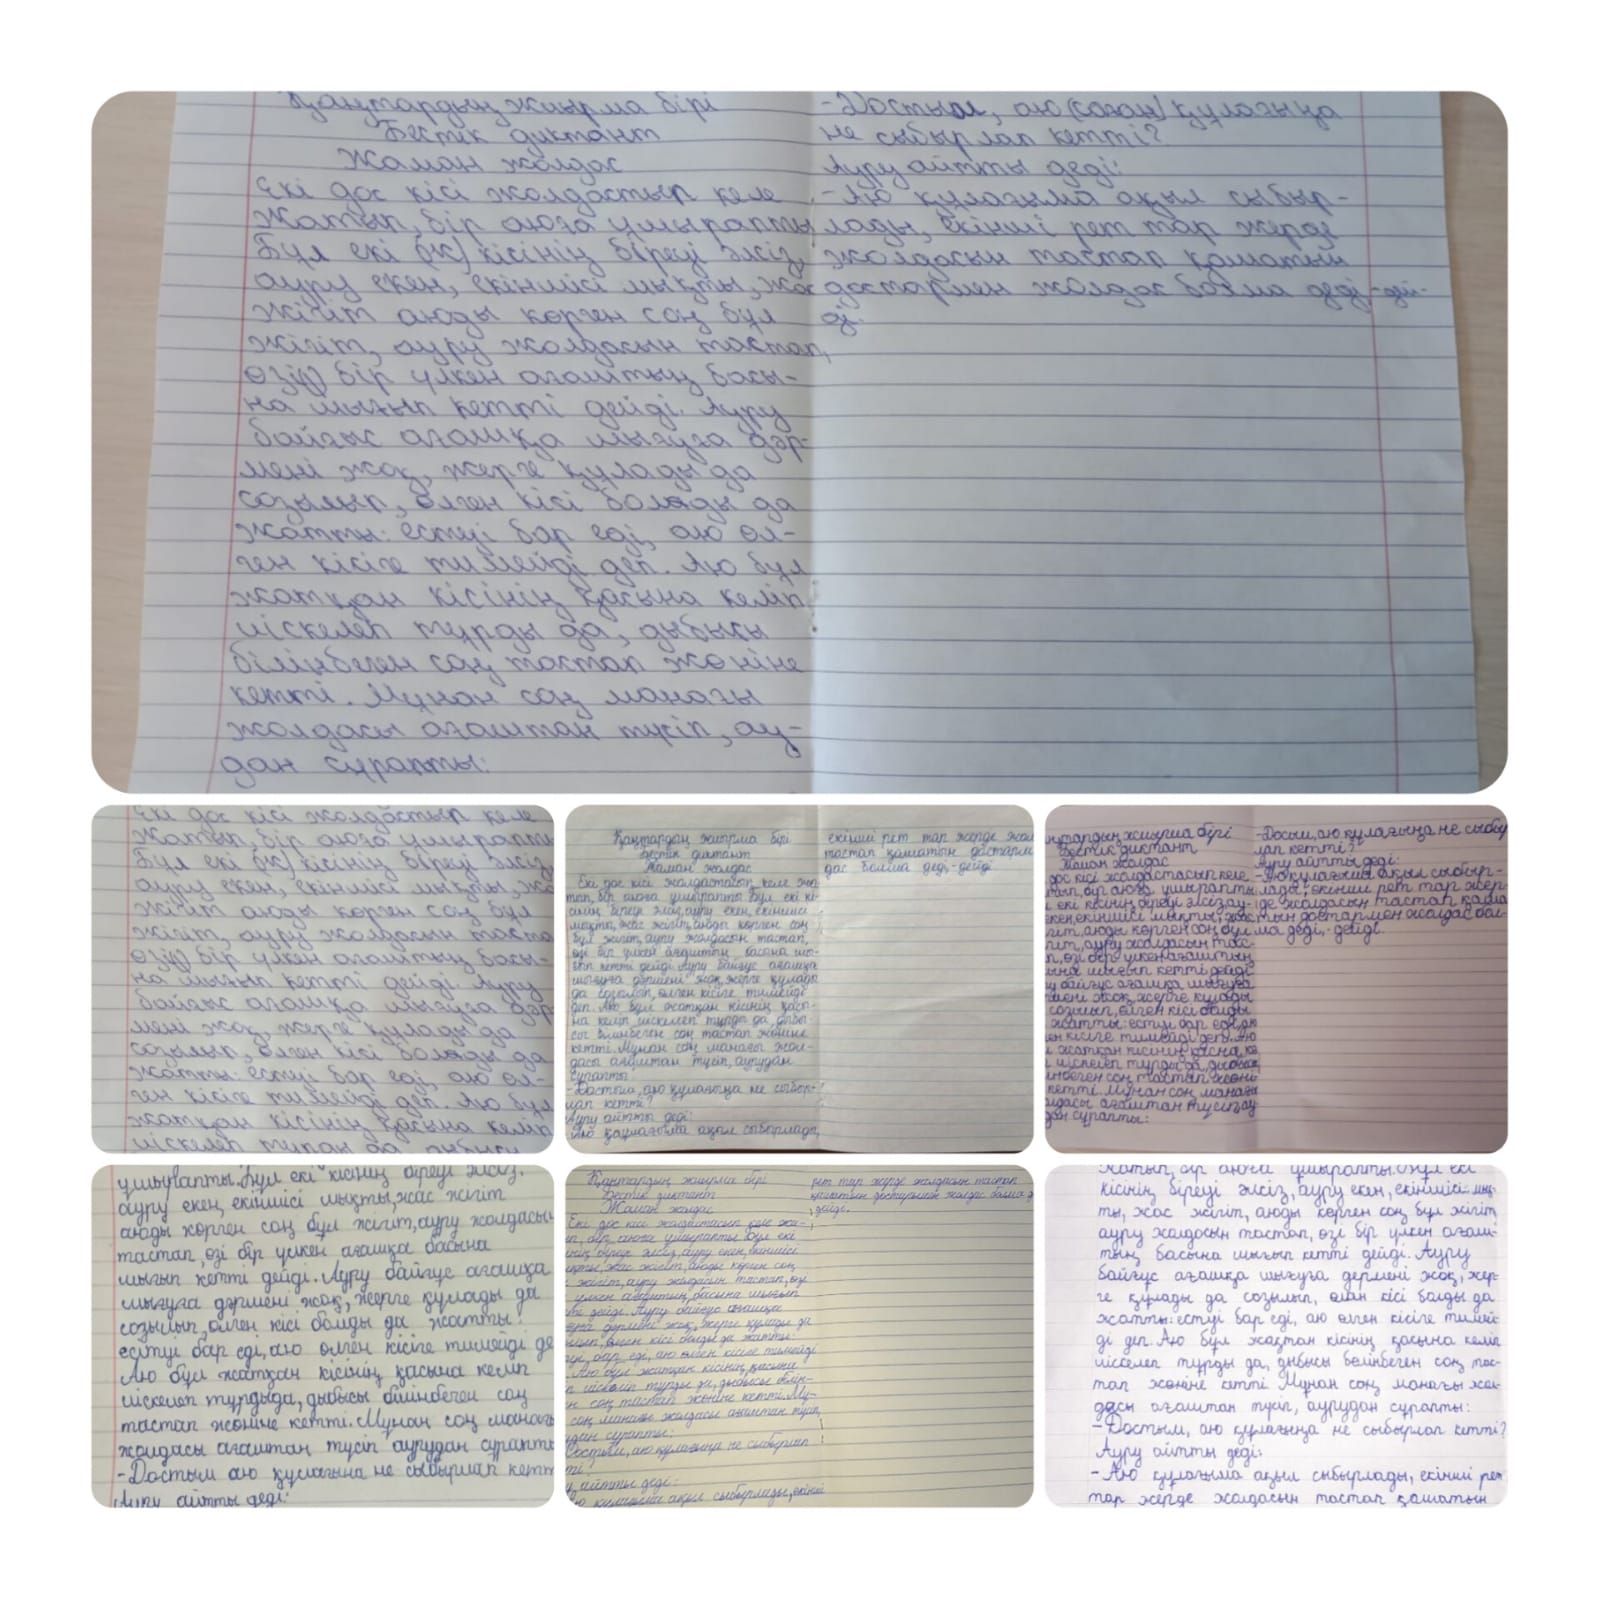 Қаңтардың жиырма бірі
Бестік диктант
Жаман жолдас
Екі дос кісі жолдастып келе
жатып, бір аюға ұшырапты
Бұл екі (к) кісінің біреуі әлсіз,
ауру екен, екіншісі мықты, жас
жігіт аюды көрген соң бұл
жігіт, ауру жолдасын тастап,
өзі бір үлкен ағаштың басы-
на шығып кетті дейді. Ауру
байғыс ағашқа шығуға дәр-
мені жоқ, жерге құлады да
созылып, өлген кісі болады да
жатты: естуі бар еді, аю өл-
ген кісіге тимейді деп. Аю бұл
жатқан кісінің қасына келіп
иіскелеп тұрды да, дыбысы
білінбеген соң тастап жөніне
кетті. Мұнан соң манағы
жолдасы ағаштан түсіп, ау-
дан сұрапты:
-Достым, аю (саған) құлағыңа
не сыбырлап кетті?
Ауру айтты деді:
-Аю құлағыма ақыл сыбыр-
лады, екінші рет тар жерде
жолдасын тастап қашатын
достармен жолдас болма деді,-дей-
ді.
Екі дос кісі жолдастып келе
жатып, бір аюға ұшырапты
Бұл екі (к) кісінің біреуі әлсіз,
ауру екен, екіншісі мықты, жа
жігіт аюды көрген соң бұл
жігіт, ауру жолдасын таста
өзі бір үлкен ағаштың басы-
на шығып кетті дейді Ауру
байғыс ағашқа шығуға дәр-
мені жоқ, жерге құлады да
созылып, өлген кісі болады да
жатты: естуі бар еді, аю өл-
ген кісіге тимейді деп. Аю бұл
жатқан кісінің қасына келіп
иіскелеп тұрды да, дыбысы
Қаңтардың жиырма бірі
Бестік диктант
Жаман жолдас
Екі дос кісі жолдастасып келе жа-
тып, бір аюға ұшырапты Бұл екі кі-
сінің біреуі әлсіз, ауру екен, екіншісі
мықты, жас жігіт, аюды көрген соң
бұл жігіт, ауру жолдасын тастап,
өзі бір үлкен ағаштың басына шы-
ғып кетті дейді. Ауру байғұс ағашқа
шығуға дәрмені жоқ, жерге құлады
да созылып, өлген кісіге тимейді
деп. Аю бұл жатқан кісінің қасы-
на келіп иіскелеп тұрды да, дыбы-
сы білінбеген соң тастап жөніне
кетті. Мұнан соң манағы жол-
дасы ағаштан түсіп, аурудан
сұрапты:
-Достым, аю құлағыңа не сыбыр-
лап кетті?
Ауру айтты деді:
-Аю құлағыма ақыл сыбырлады,
екінші рет тар жерде жол
тастап қашатын достарм
дас болма деді,-дейді
нтардың жиырма бірі
Бестік диктант
Жаман жолдас
дос кісі жолдастасып келе
тып, бір аюға ұшырапты
екі кісінің біреуі әлсіз, ау-
екен, екіншісі мықты, жас
гіт, аюды көрген соң бұл
гіт, ауру жолдасын тас-
п, өзі бір үлкен ағаштың
ына шығып кетті дейді
у байғұс ағашқа шығуға
мені жоқ, жерге құлады
созылып, өлген кісі болды
жатты: естуі бар еді, аю
ен кісіге тимейді деп. Аю
жатқан кісінің қасына, ке
иіскелеп тұрды да, дыбысы
інбеген соң тастап жөні-
кетті. Мұнан соң манағы
лдасы ағаштан түсіп, ау
дан сұрапты:
-Досым, аю құлағыңа не сыбыр
лап кетті?
Ауру айтты деді:
-Аю құлағыма ақыл сыбыр-
лады, екінші рет тар жер-
де жолдасын тастап қаша
тын достармен жолдас бол-
ма деді,-дейді.
ұшырапты. Бұл екі кісінің біреуі әлсіз,
ауру екен, екіншісі мықты, жас жігіт
аюды көрген соң бұл жігіт, ауру жолдасын
тастап, өзі бір үлкен ағашқа басына
шығып кетті дейді. Ауру байғұс ағашқа
шығуға дәрмені жоқ, жерге құлады да
созылып, өлген кісі болды да жатты:
есітуі бар еді, аю өлген кісіге тимейді де
Аю бұл жатқан кісінің қасына келіп
иіскелеп тұрдыда, дыбысы білінбеген соң
тастап жөніне кетті. Мұнан соң манағы
жолдасы ағаштан түсіп аурудан сұрапты
-Достым аю құлағына не сыбырлап кетт
Ауру айтты деді:
Қаңтардың жиырма бірі
Бестік диктант
Жаман жолдас
Екі дос кісі жолдастасып келе жа-
п, бір аюға ұшырапты Бұл екі
інің біреуі әлсіз, ауру екен, екіншісі
қты, жас жігіт, аюды көрген соң
жігіт, ауру жолдасын тастап, өзі
үлкен ағаштың басына шығып
ті дейді. Ауру байғұс ағашқа
ғуға дәрмені жоқ, жерге құлады да
ылып, өлген кісі болды да жатты:
туі бар еді, аю өлген кісіге тимейді
Аю бұл жатқан кісінің қасына
п иіскелеп тұрды да, дыбысы білін-
н соң тастап жөніне кетті. Мұ-
соң манағы жолдасы ағаштан түсіп,
удан сұрапты:
Достым, аю құлағыңа не сыбырлап
ті?
у айтты деді:
Аю құлағыма ақыл сыбырлады, екінші
рет тар жерде жолдасын тастап
қашатын достармен жолдас болма д
дейді.
жатып, бір аюға ұшырапты. Бұл екі
кісінің біреуі әлсіз, ауру екен, екіншісі мық-
ты, жас жігіт, аюды көрген соң бұл жігіт
ауру жолдасын тастап, өзі бір үлкен ағаш-
тың басына шығып кетті дейді. Ауру
байғұс ағашқа шығуға дермені жоқ, жер-
ге құлады да созылып, өлан кісі болды да
жатты: естуі бар еді, аю өлген кісіге тимей-
ді деп. Аю бұл жақтан кісінің қасына келіп
иісселеп тұрды да, дыбысы белінбеген соң тас-
тап жөніне кетті. Мұнан соң манағы жол-
дасы ағаштан түсіп, аурудан сұрапты:
-Достым, аю құлағыңа не сыбырлап кетті?
Ауру айтты деді:
-Аю құлағыма ақыл сыбырлады, екінші рет
тар жерде жолдасын тастап қашатын